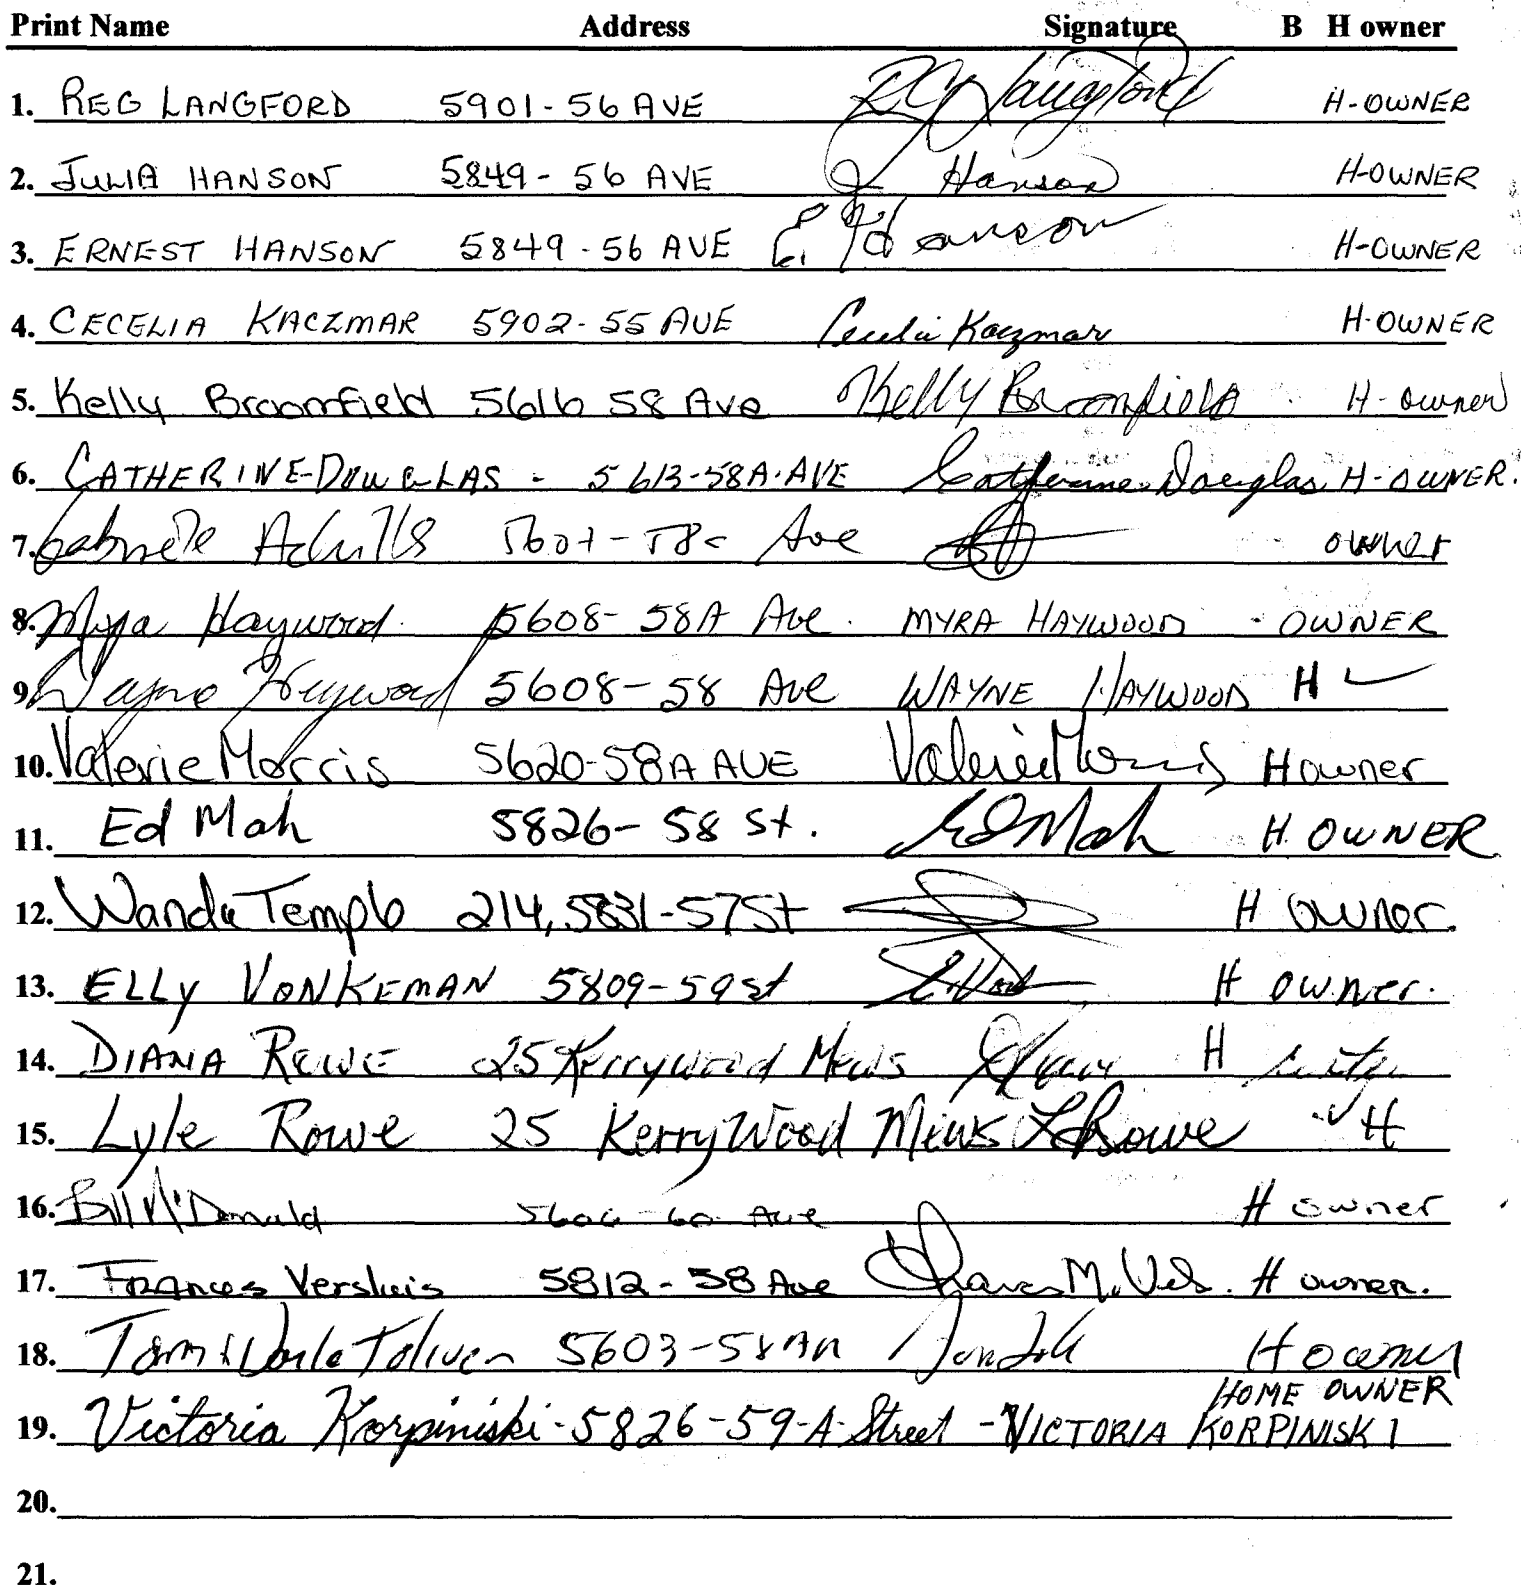 Print Name Address Signature B H owner
1. REG LANGFORD 5901-56 AVE RG Langford H-OWNER
2. JULIA HANSON 5849-56 AVE J Hanson H-OWNER
3. ERNEST HANSON 5849-56 AVE E. Hanson H-OWNER
4. CECELIA KACZMAR 5902-55 AVE Cecelia Kaczmar H-OWNER
5. Kelly Broomfield 5616 58 Ave Kelly Broomfield H-owner
6. CATHERINE-DOUGLAS - 5613-58A-AVE Catherine Douglas H-OWNER.
7. Ave owner
8. Myra Haywood. 5608-58A Ave. MYRA HAYWOOD - OWNER
9. Wayne Haywood 5608-58 Ave WAYNE HAYWOOD H
10. Valerie Morris 5620-58A AVE Valerie Morris H owner
11. Ed Mah 5826-58 St. Ed Mah H. OWNER
12. Wanda Temple 214, 5831-57 St H owner.
13. ELLY VONKEMAN 5809-59 st H owner.
14. DIANA ROWE 25 Kerrywood Mews H
15. Lyle Rowe 25 Kerry Wood Mews L Rowe H
16. Bill McDonald 5606-60 Ave H owner
17. Frances Versluis 5812-58 Ave H owner.
18. Tom & 5603-58 H owner
HOME OWNER
19. Victoria Korpiniski-5826-59-A-Street - VICTORIA KORPINISKI
20.
21.